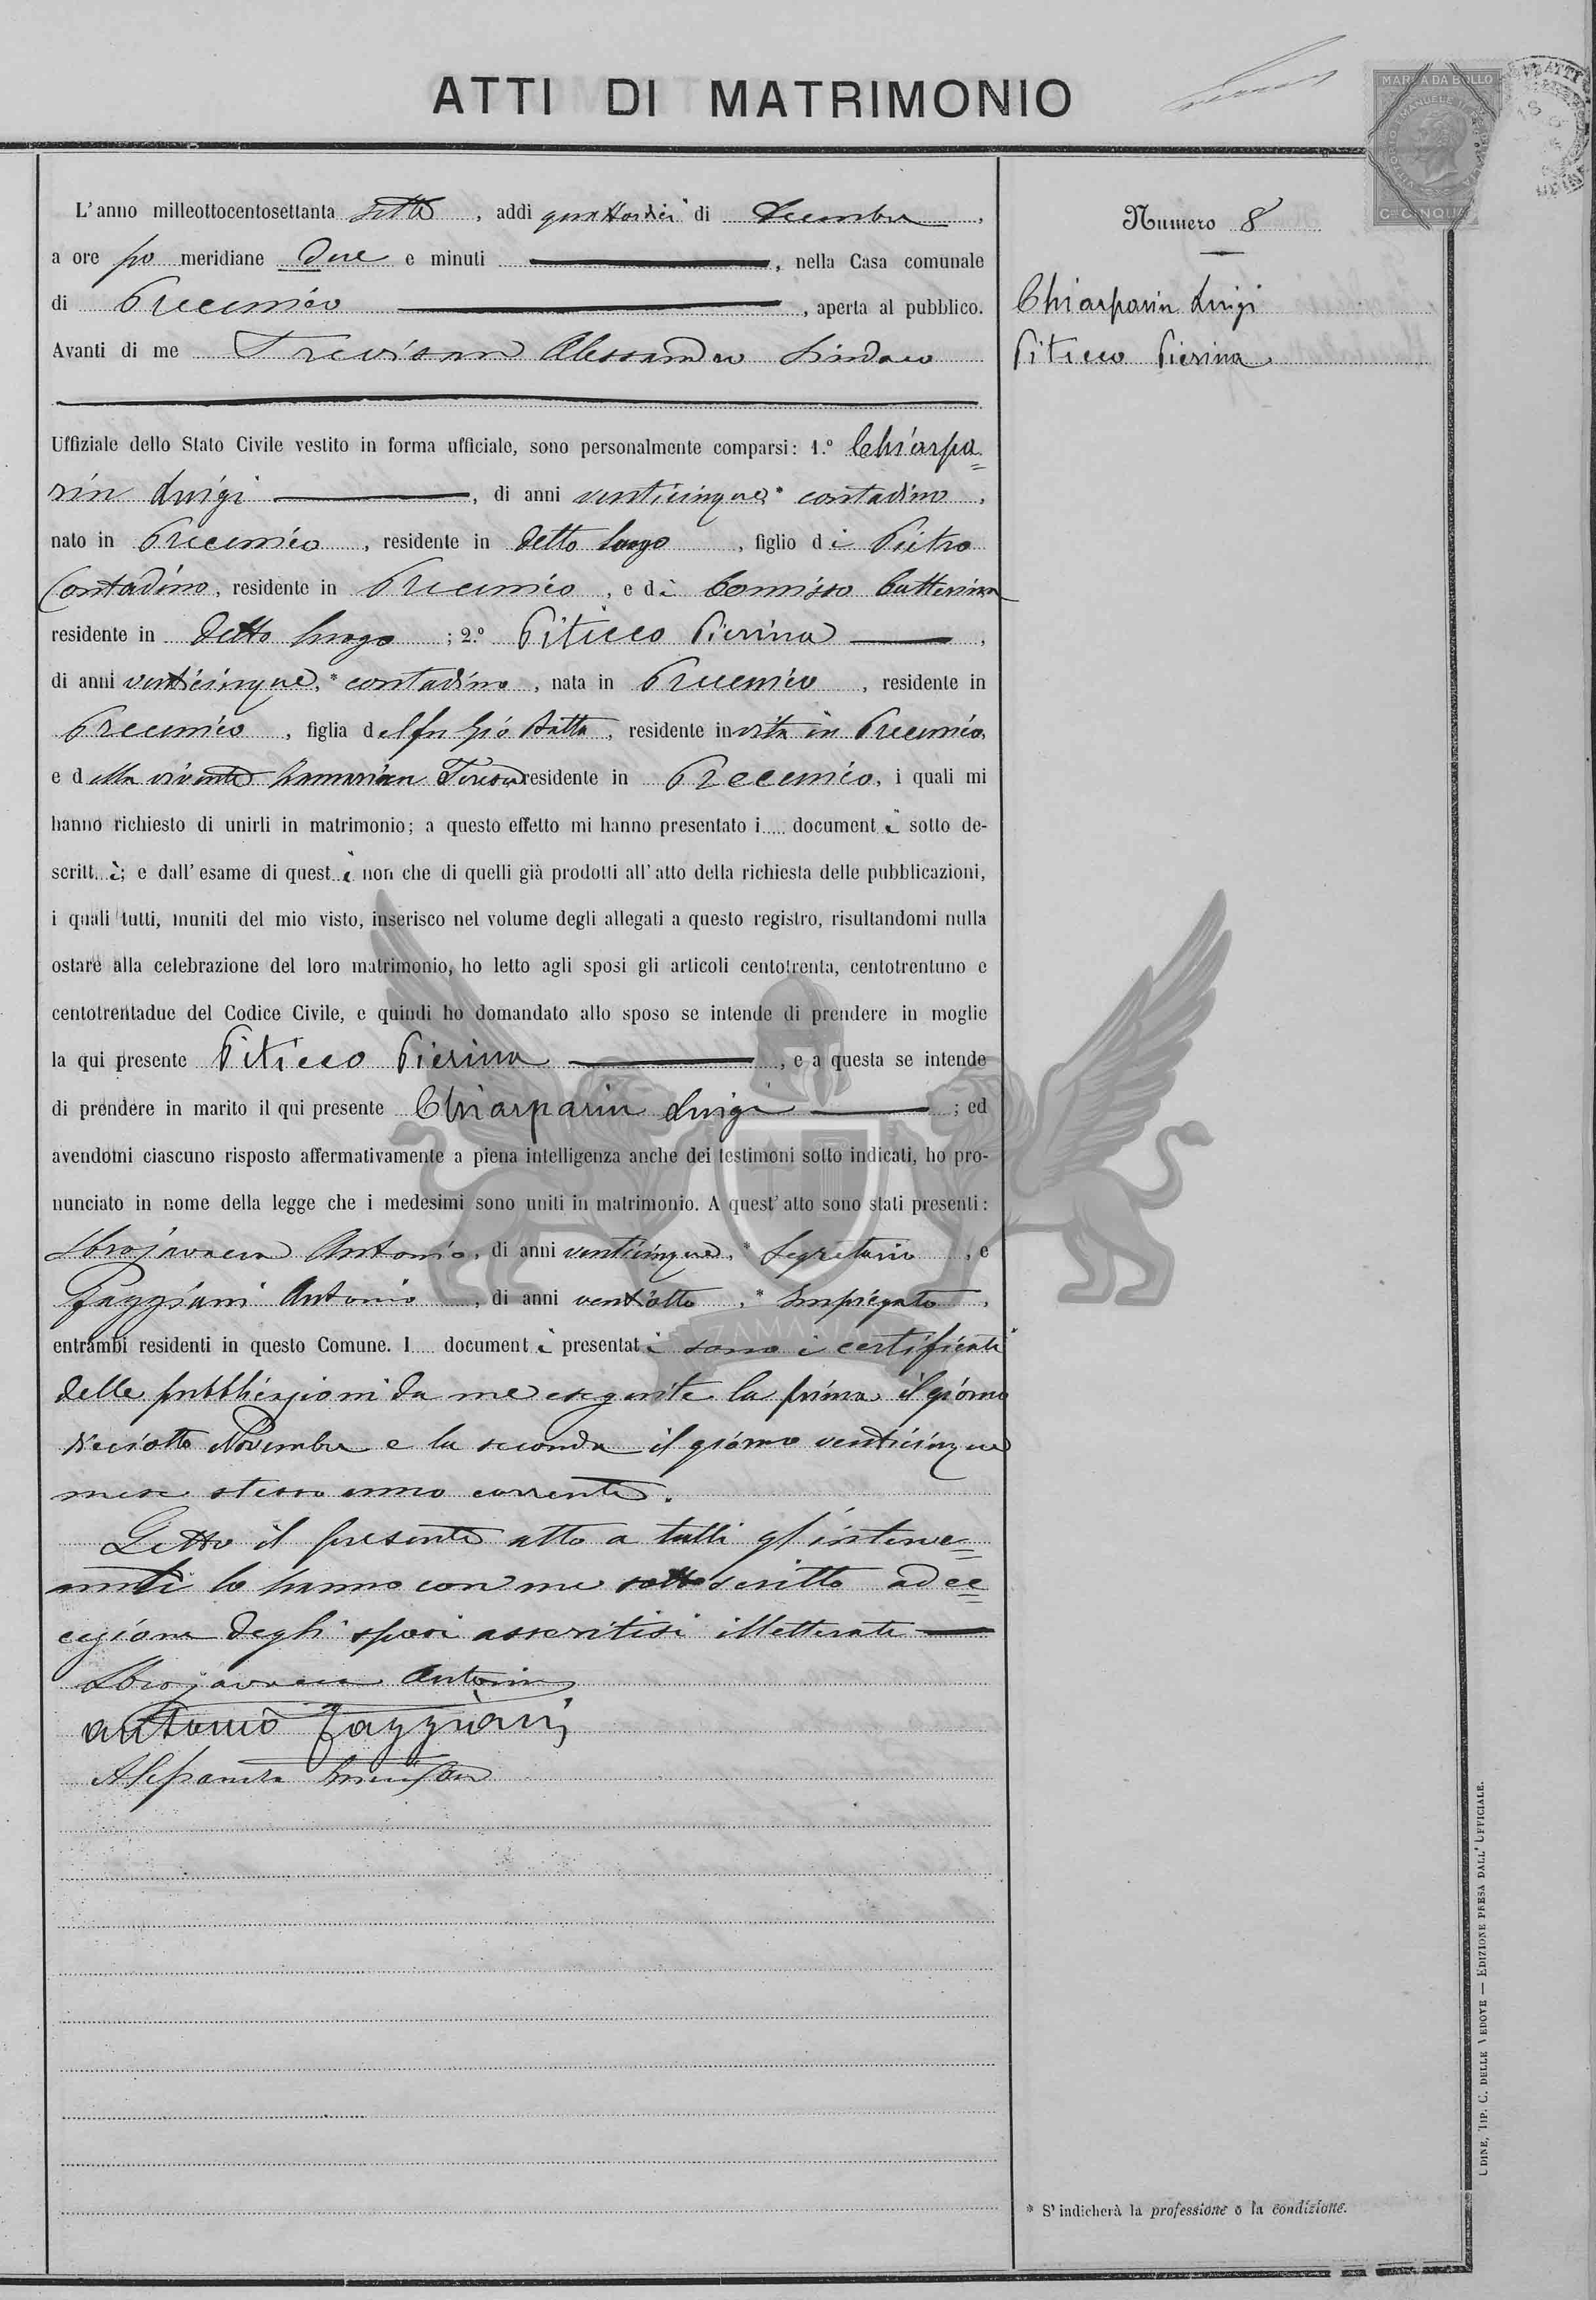 ATTI DI MATRIMONIO
MARCA DA BOLLO
L'anno milleottocentosettanta sette, addi quattordici di Decembre,
a ore po meridiane due e minuti, nella Casa comunale
di Precenico, aperta al pubblico.
Avanti di me Trevisan Alessandro Sindaco
Numero 8
Chiarparin Luigi
Piticco Pierina
Uffiziale dello Stato Civile vestito in forma ufficiale, sono personalmente comparsi: 1.° Chiarpa=
rin Luigi, di anni venticinque,* contadino,
nato in Precenico, residente in detto luogo, figlio di Pietro
Contadino, residente in Precenico, e di Comisso Catterina
residente in detto luogo; 2.° Piticco Pierina,
di anni venticinque,* contadina, nata in Precenico, residente in
Precenico, figlia del fu Gio Batta, residente in vita in Precenico,
e della vivente Teresa residente in Precenico, i quali mi
hanno richiesto di unirli in matrimonio; a questo effetto mi hanno presentato i documenti sotto de-
scritti; e dall'esame di questi non che di quelli già prodotti all'atto della richiesta delle pubblicazioni,
i quali tutti, muniti del mio visto, inserisco nel volume degli allegati a questo registro, risultandomi nulla
ostare alla celebrazione del loro matrimonio, ho letto agli sposi gli articoli centotrenta, centotrentuno e
centotrentadue del Codice Civile, e quindi ho domandato allo sposo se intende di prendere in moglie
la qui presente Piticco Pierina, e a questa se intende
di prendere in marito il qui presente Chiarparin Luigi; ed
avendomi ciascuno risposto affermativamente a piena intelligenza anche dei testimoni sotto indicati, ho pro-
nunciato in nome della legge che i medesimi sono uniti in matrimonio. A quest'atto sono stati presenti:
Sbrojavacca Antonio, di anni venticinque,* Segretario, e
Faggiani Antonio, di anni ventiotto,* Impiegato,
entrambi residenti in questo Comune. I documenti presentati sono i certificati
delle pubblicazioni da me eseguite la prima il giorno
dieciotto Novembre e la seconda il giorno venticinque
mese stesso anno corrente.
Letto il presente atto a tutti gl'interve=
nuti lo hanno con me sottoscritto ad ec=
cezione degli sposi asseritisi illetterati
Sbrojavacca Antonio
Antonio Faggiani
Alessandro Trevisan
ZAMARIAN
UDINE, TIP. C. DELLE VEDOVE — EDIZIONE PRESA DALL'UFFICIALE.
* S'indicherà la professione o la condizione.